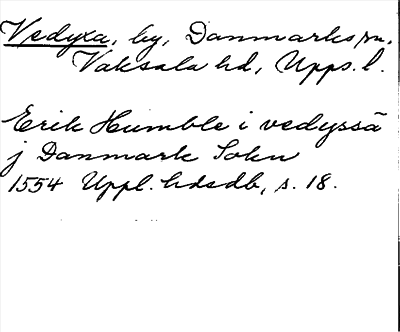 Vedyxa, by, Danmarks sn,
Vaksala hd, Upps. l.
Erik Humble i vedyssã
j Danmark Sokn
1554 Uppl. hdsdb, s. 18.